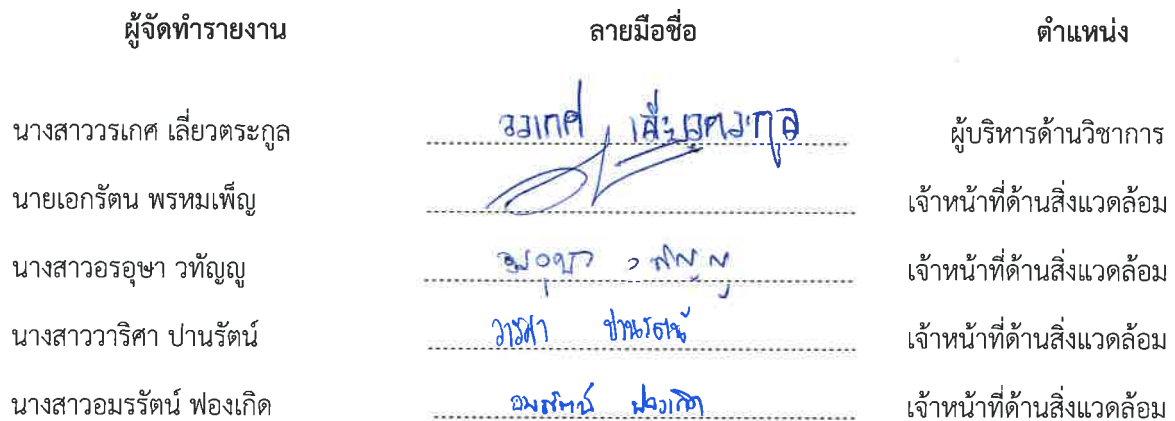 ผู้จัดทำรายงาน ลายมือชื่อ ตำแหน่ง
นางสาววรเกศ เลี่ยวตระกูล วรเกศ เลี่ยวตระกูล ผู้บริหารด้านวิชาการ
นายเอกรัตน พรหมเพ็ญ เจ้าหน้าที่ด้านสิ่งแวดล้อม
นางสาวอรอุษา วทัญญู อรอุษา วทัญญู เจ้าหน้าที่ด้านสิ่งแวดล้อม
นางสาววาริศา ปานรัตน์ วาริศา ปานรัตน์ เจ้าหน้าที่ด้านสิ่งแวดล้อม
นางสาวอมรรัตน์ ฟองเกิด อมรรัตน์ ฟองเกิด เจ้าหน้าที่ด้านสิ่งแวดล้อม